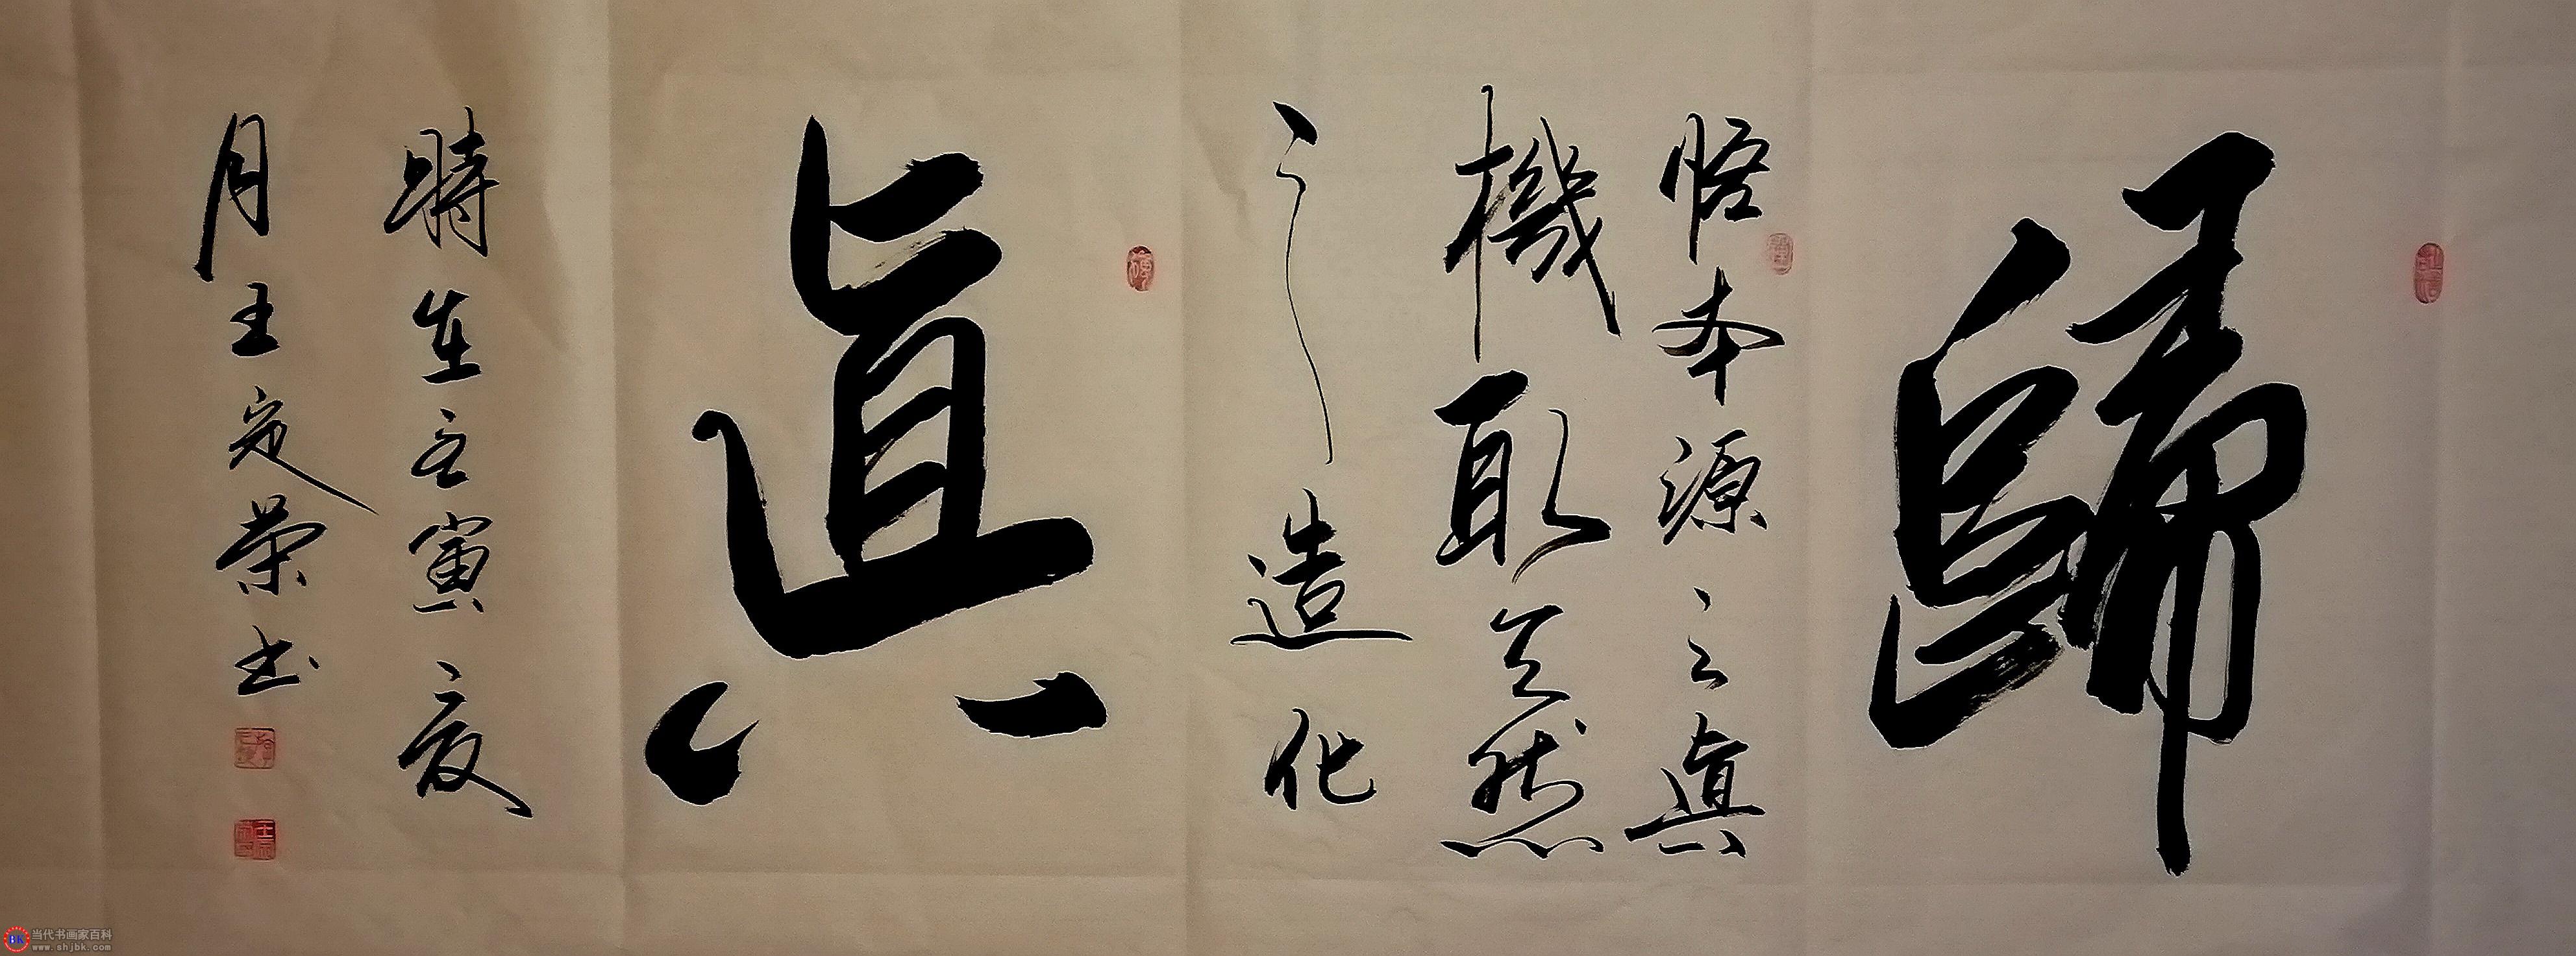 歸
悟本源之真
機取天然
之造化
真
時在壬寅夏
月王定榮书
当代书画家百科
www.shjbk.com